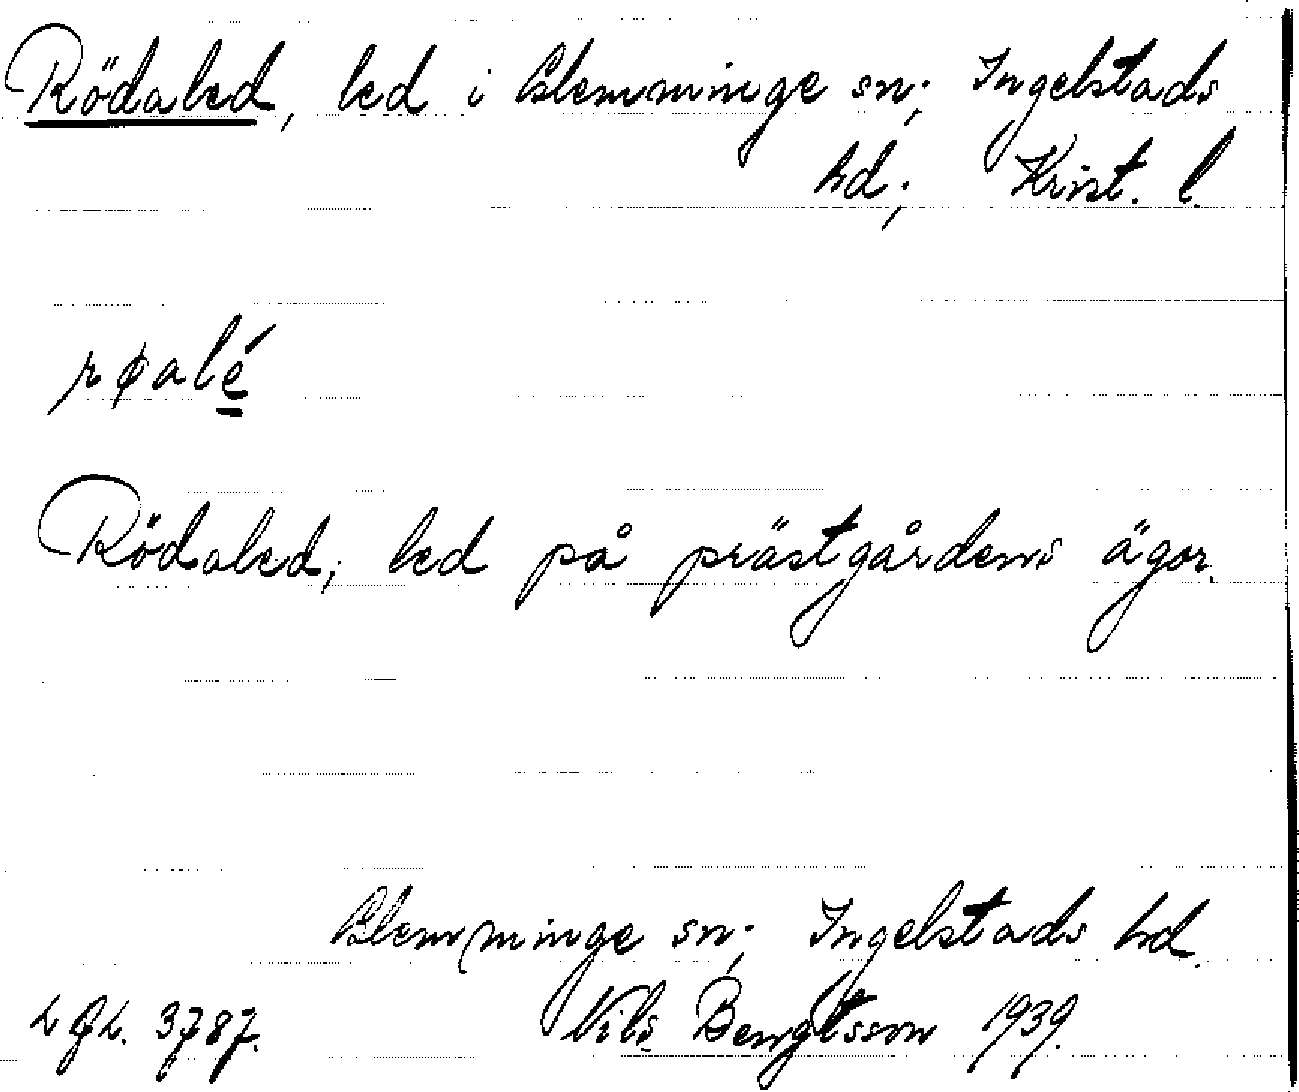 Rödaled, led i Glemminge sn; Ingelstads
hd; Krist. l.
røalé
Rödaled; led på prästgårdens ägor.
Glemminge sn; Ingelstads hd.
LGL. 3787. Nils Bengtsson 1939.